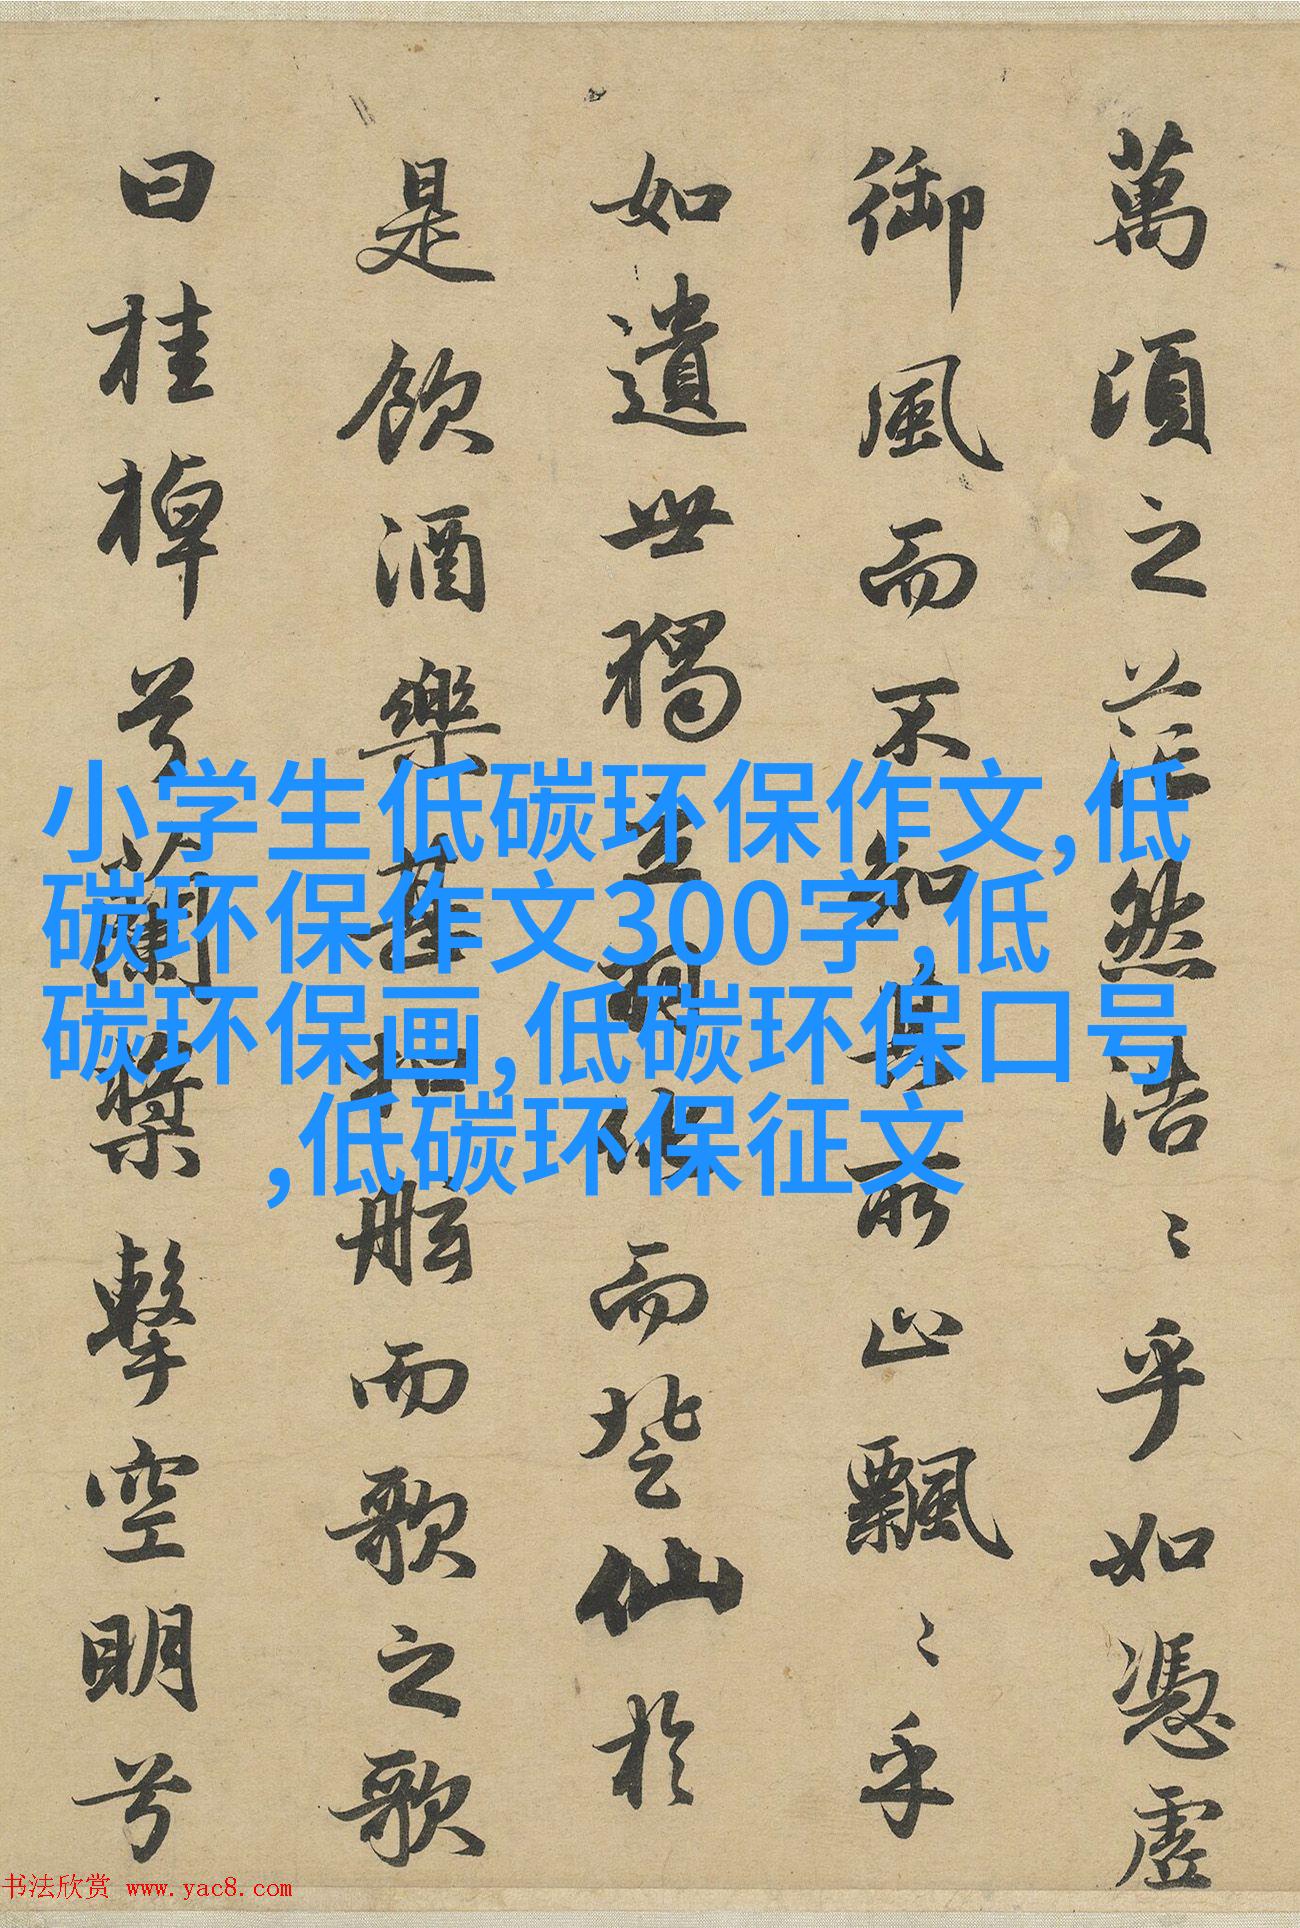 萬頃之茫然浩〻乎如憑虛
御風而不知其所止飄〻乎
如遺世獨立羽化而登仙於
是飲酒樂甚扣舷而歌之歌
曰桂棹兮蘭槳擊空明兮
小学生低碳环保作文,低
碳环保作文300字,低
碳环保画,低碳环保口号
,低碳环保征文
书法欣赏 www.yac8.com